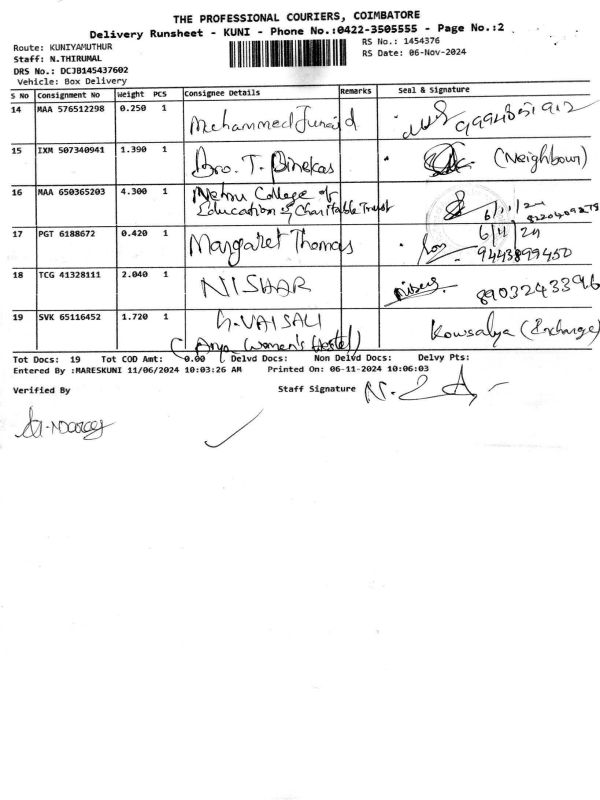 THE PROFESSIONAL COURIERS, COIMBATORE
Delivery Runsheet - KUNI - Phone No.:0422-3505555 - Page No.:2
Route: KUNIYAMUTHUR
RS No.: 1454376
Staff: N.THIRUMAL
RS Date: 06-Nov-2024
DRS No.: DCJB145437602
Vehicle: Box Delivery
S No Consignment No Weight PCS Consignee Details Remarks Seal & Signature
14 MAA 576512298 0.250 1 Mohammed Junaid
15 IXM 507340941 1.390 1 Bro. T. (Neighbour)
16 MAA 650365203 4.300 1 Nehru College of
Education & Charitable Trust 6/11/24
17 PGT 6188672 0.420 1 Margaret Thomas 9443899450
18 TCG 41328111 2.040 1 NISHAR 8903243396
19 SVK 65116452 1.720 1 VAISALI Kowsalya (Incharge)
(Arya Women's Hostel)
Tot Docs: 19 Tot COD Amt: 0.00 Delvd Docs: Non Delvd Docs: Delvy Pts:
Entered By :MARESKUNI 11/06/2024 10:03:26 AM Printed On: 06-11-2024 10:06:03
Verified By Staff Signature